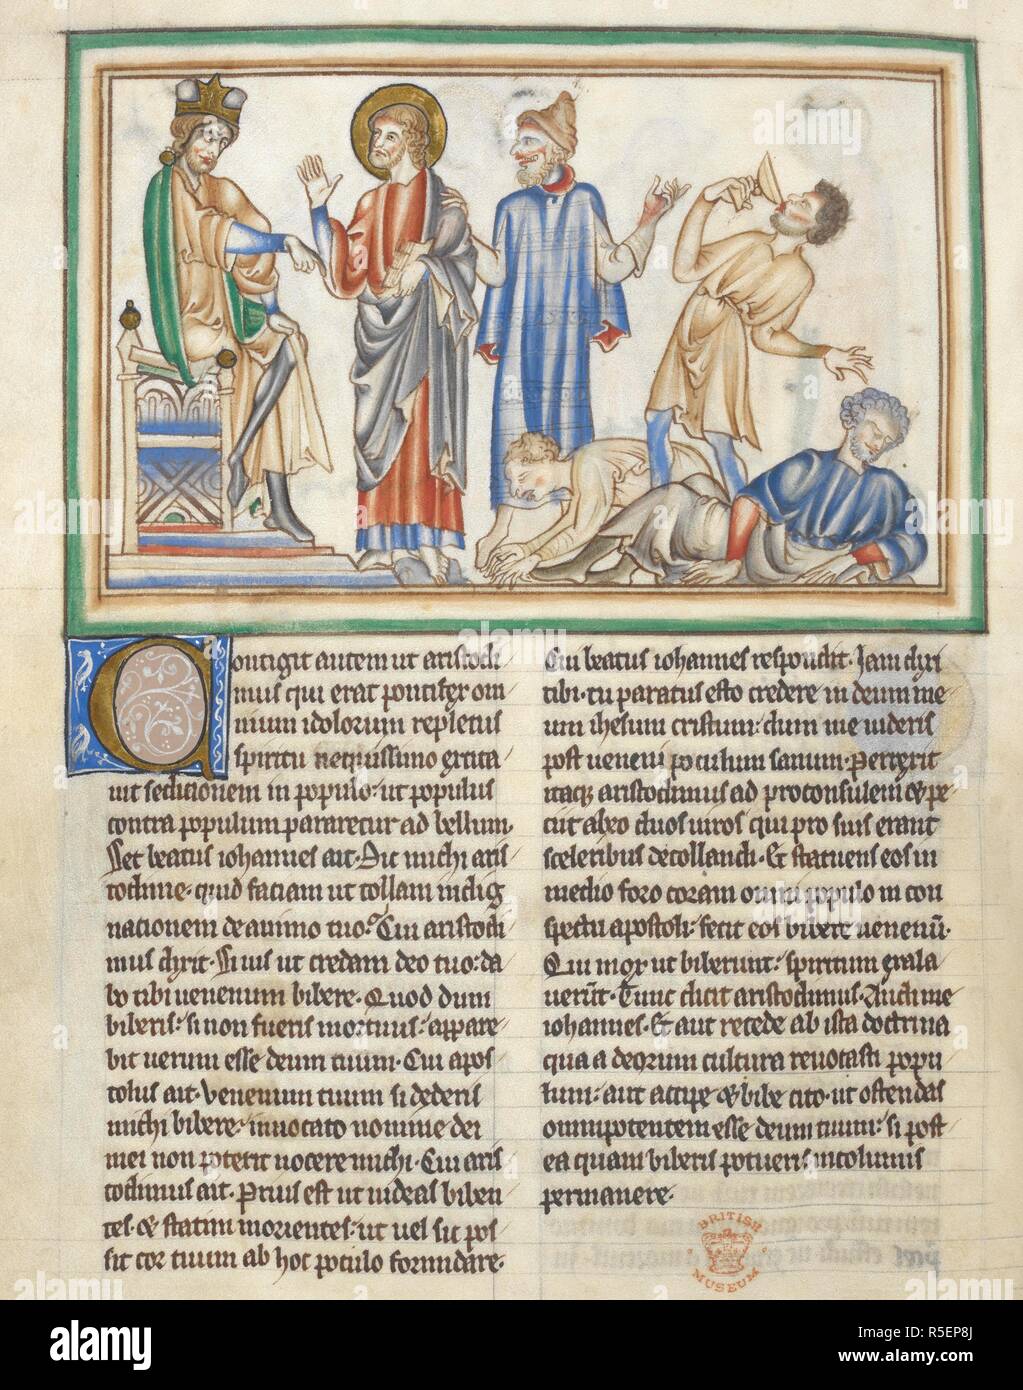 Contigit autem ut aristodi
mus qui erat pontifex om
nium idolorum repletus
spiritu nequissimo excita
uit seditionem in populo: ut populus
contra populum pararetur ad bellum.
Set beatus iohannes ait. Dic michi aris
todime. quid faciam ut tollam indig
nationem de animo tuo? Cui aristodi
mus dixit. Si uis ut credam deo tuo: da
bo tibi uenenum bibere. Quod dum
biberis: si non fueris mortuus: appare
bit uerum esse deum tuum. Cui apos
tolus ait. Venenum tuum si dederis
michi bibere: inuocato nomine dei
mei non poterit nocere michi. Cui aris
todimus ait. Prius est ut uideas biben
tes. & statim morientes: ut uel sic pos
sit cor tuum ab hoc poculo formidare.
Cui beatus iohannes respondit. Iam dixi
tibi. tu paratus esto credere in deum me
um ihesum cristum: dum me uideris
post ueneni poculum sanum. Perrexit
itaque aristodimus ad proconsulem & pe
ciit ab eo duos uiros qui pro suis erant
sceleribus decollandi. Et statuens eos in
medio foro coram omni populo in con
spectu apostoli: fecit eos bibere uenenū.
Qui mox ut biberunt: spiritum exala
uerūt. Tunc dicit aristodimus. Audi me
iohannes. Et aut recede ab ista doctrina
qua a deorum cultura reuocasti popu
lum: aut accipe & bibe cito. ut ostendas
omnipotentem esse deum tuum: si post
ea quam biberis potueris incolumis
permanere.
BRITISH
MUSEUM
alamy
Image ID: R5EP8J
www.alamy.com